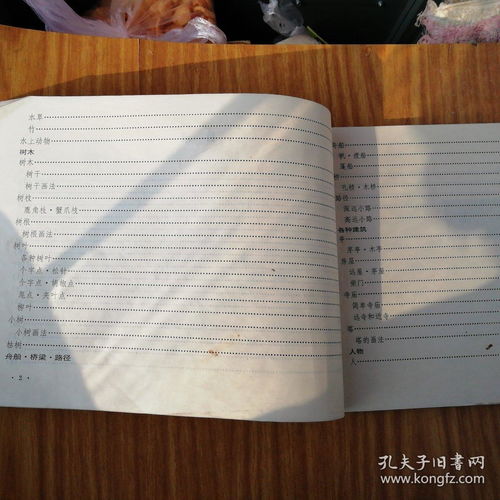 水草
竹
水上动物
树木
树木
树干
树干画法
树枝
鹿角枝·蟹爪枝
树根
树根画法
树叶
各种树叶
个字点·松针
个字点·胡椒点
尾点·夹叶点
柳叶
小树
小树画法
枯树
舟船·桥梁·路径
·2·
帆·渡船
篷船
孔桥·木桥
路径
深远小路
高远小路
各种建筑
草亭·木亭
房屋
远屋·茅屋
柴门
寺庙
简单寺庙
远寺和近寺
塔
塔的画法
人物
人
孔夫子旧书网
www.kongfz.com